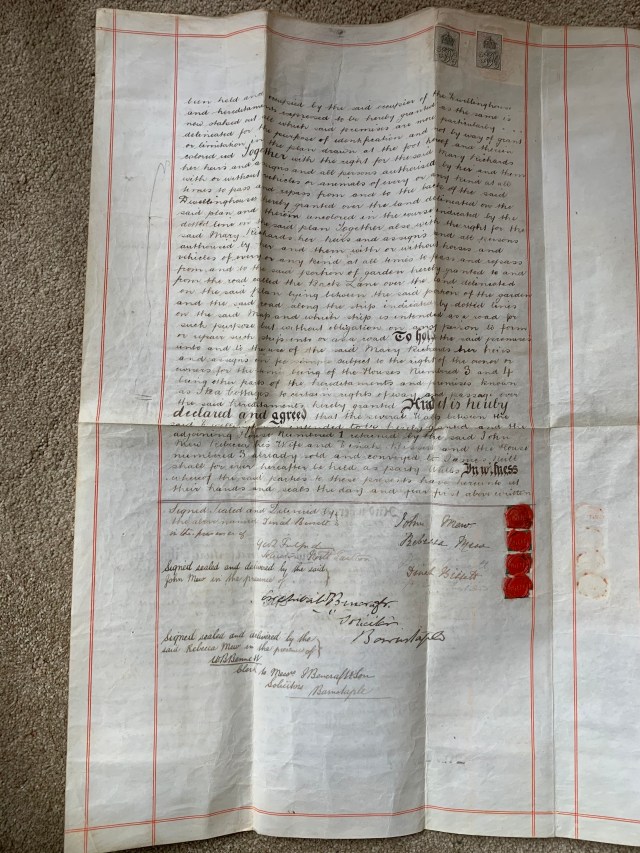 been held and occupied by the said occupier of the Dwellinghouse
and hereditaments expressed to be hereby granted as the same is
now staked out all which said premises are more particularly
delineated for the purpose of identification and not by way of grant
or limitation in the plan drawn at the foot hereof and therein
colored red Together with the right for the said Mary Richards
her heirs and assigns and all persons authorised by her and them
with or without vehicles or animals of every or any kind at all
times to pass and repass from and to the back of the said
Dwellinghouse hereby granted over the land delineated on the
said plan and therein uncolored in the course indicated by the
dotted line on the said plan Together also with the right for the
said Mary Richards her heirs and assigns and all persons
authorised by her and them with or without horses and
vehicles of every or any kind at all times to pass and repass
from and to the said portion of garden hereby granted to and
from the road called the Back Lane over the land delineated
on the said plan lying between the said portion of the garden
and the said road along the strip indicated by dotted lines
on the said Map and which strip is intended as a road for
such purpose but without obligation on any person to form
or repair such strip into or as a road To hold the said premises
unto and to the use of the said Mary Richards her heirs
and assigns in fee simple subject to the right of the owner or
owners for the time being of the Houses Numbered 3 and 4
being other parts of the hereditaments and premises known
as Cottages to certain rights of way and passage over
the said hereditaments hereby granted And it is hereby
declared and agreed that the several Walls between the
said intended to be hereby granted and the
adjoining House Numbered 1 retained by the said John
Mew Rebecca his Wife and and the House
numbered 3 already sold and conveyed to James
shall for ever hereafter be held as party Walls In witness
whereof the said parties to these presents have hereunto set
their hands and seals the day and year first above written
Signed Sealed and Delivered by
the above named
in the presence of
John Mew
Rebecca Mew
Signed sealed and delivered by the said
John Mew in the presence of
Bencraft
Solicitor
Barnstaple
Signed sealed and delivered by the
said Rebecca Mew in the presence of
Bennett
Clerk to Messrs Bencraft & Son
Solicitors
Barnstaple